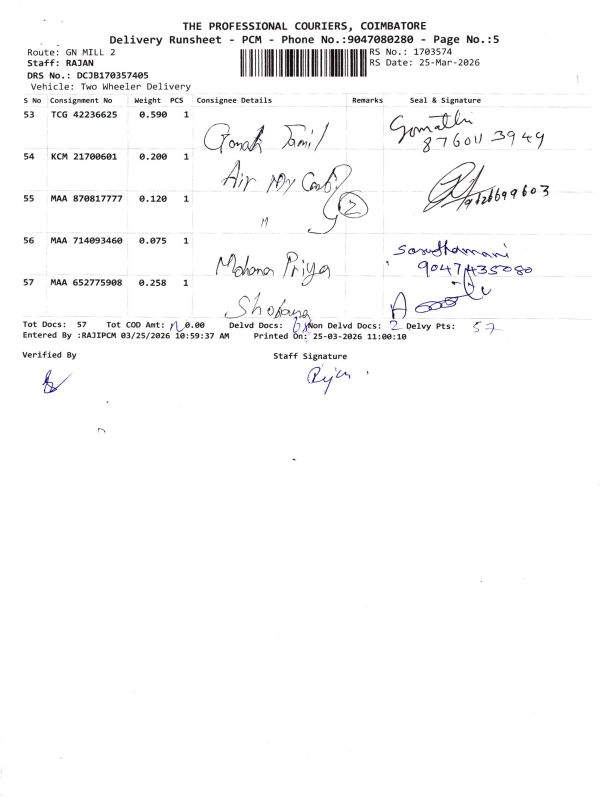 THE PROFESSIONAL COURIERS, COIMBATORE
Delivery Runsheet - PCM - Phone No.:9047080280 - Page No.:5
Route: GN MILL 2 RS No.: 1703574
Staff: RAJAN RS Date: 25-Mar-2026
DRS No.: DCJB170357405
Vehicle: Two Wheeler Delivery
S No Consignment No Weight PCS Consignee Details Remarks Seal & Signature
53 TCG 42236625 0.590 1
Tamil Gomathi
876011 3949
54 KCM 21700601 0.200 1
Air
55 MAA 870817777 0.120 1
" 2
56 MAA 714093460 0.075 1
Mohana Priya
9047435080
57 MAA 652775908 0.258 1
Shobana
Tot Docs: 57 Tot COD Amt: 0.00 Delvd Docs: Non Delvd Docs: 2 Delvy Pts: 57
Entered By :RAJIPCM 03/25/2026 10:59:37 AM Printed On: 25-03-2026 11:00:10
Verified By Staff Signature